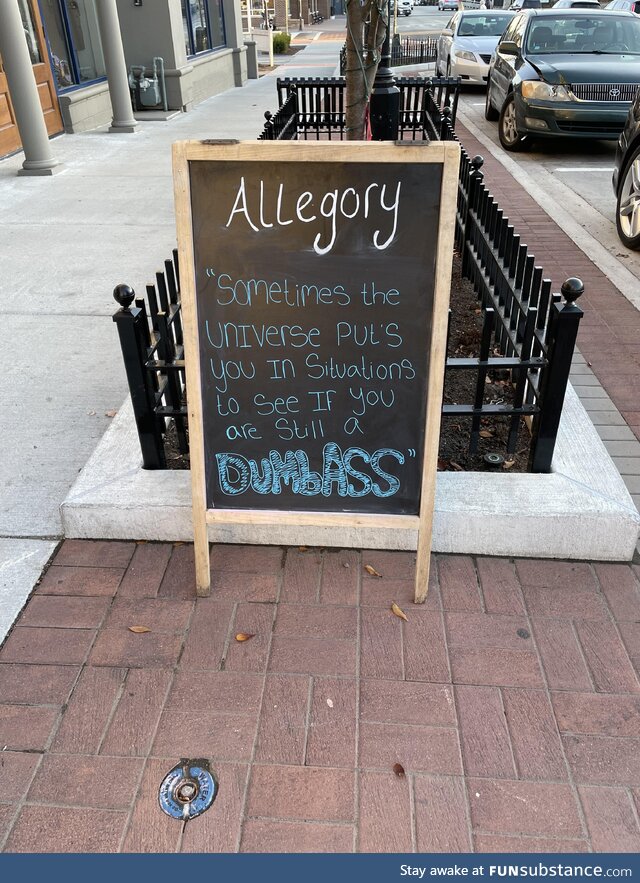 Allegory
"Sometimes the
UNIVERSE PUT'S
you IN Situations
to See IF you
are Still a
DUMbASS"
Stay awake at FUNsubstance.com